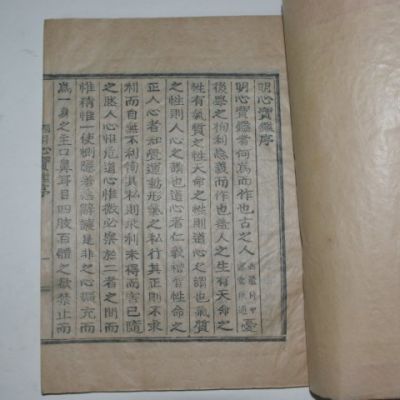 明心寶鑑序
明心寶鑑者何爲而作也古之人憂
後學之徇利忘義而作也盖人之生有天命之
性有氣質之性天命之性則道心之謂也氣質
之性則人心之謂也道心者仁義禮智性命之
正人心者知覺運動形氣之私行其正則不求
利而自無不利徇其私則求利未得而害已隨
之然人心惟危道心惟微必察於二者之間而
惟精惟一使惻隱羞惡辭讓是非之心擴充而
爲一身之主口鼻耳目四肢百體之欲禁止而
明心寶鑑序